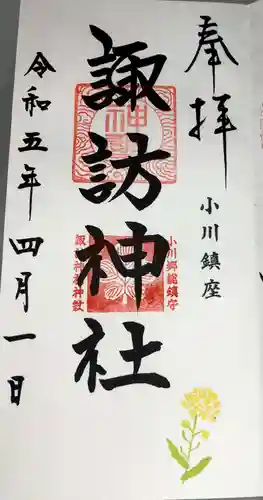 奉拝
小川鎮座
諏訪神社
小川郷総鎮守
諏訪神社神紋
令和五年四月一日